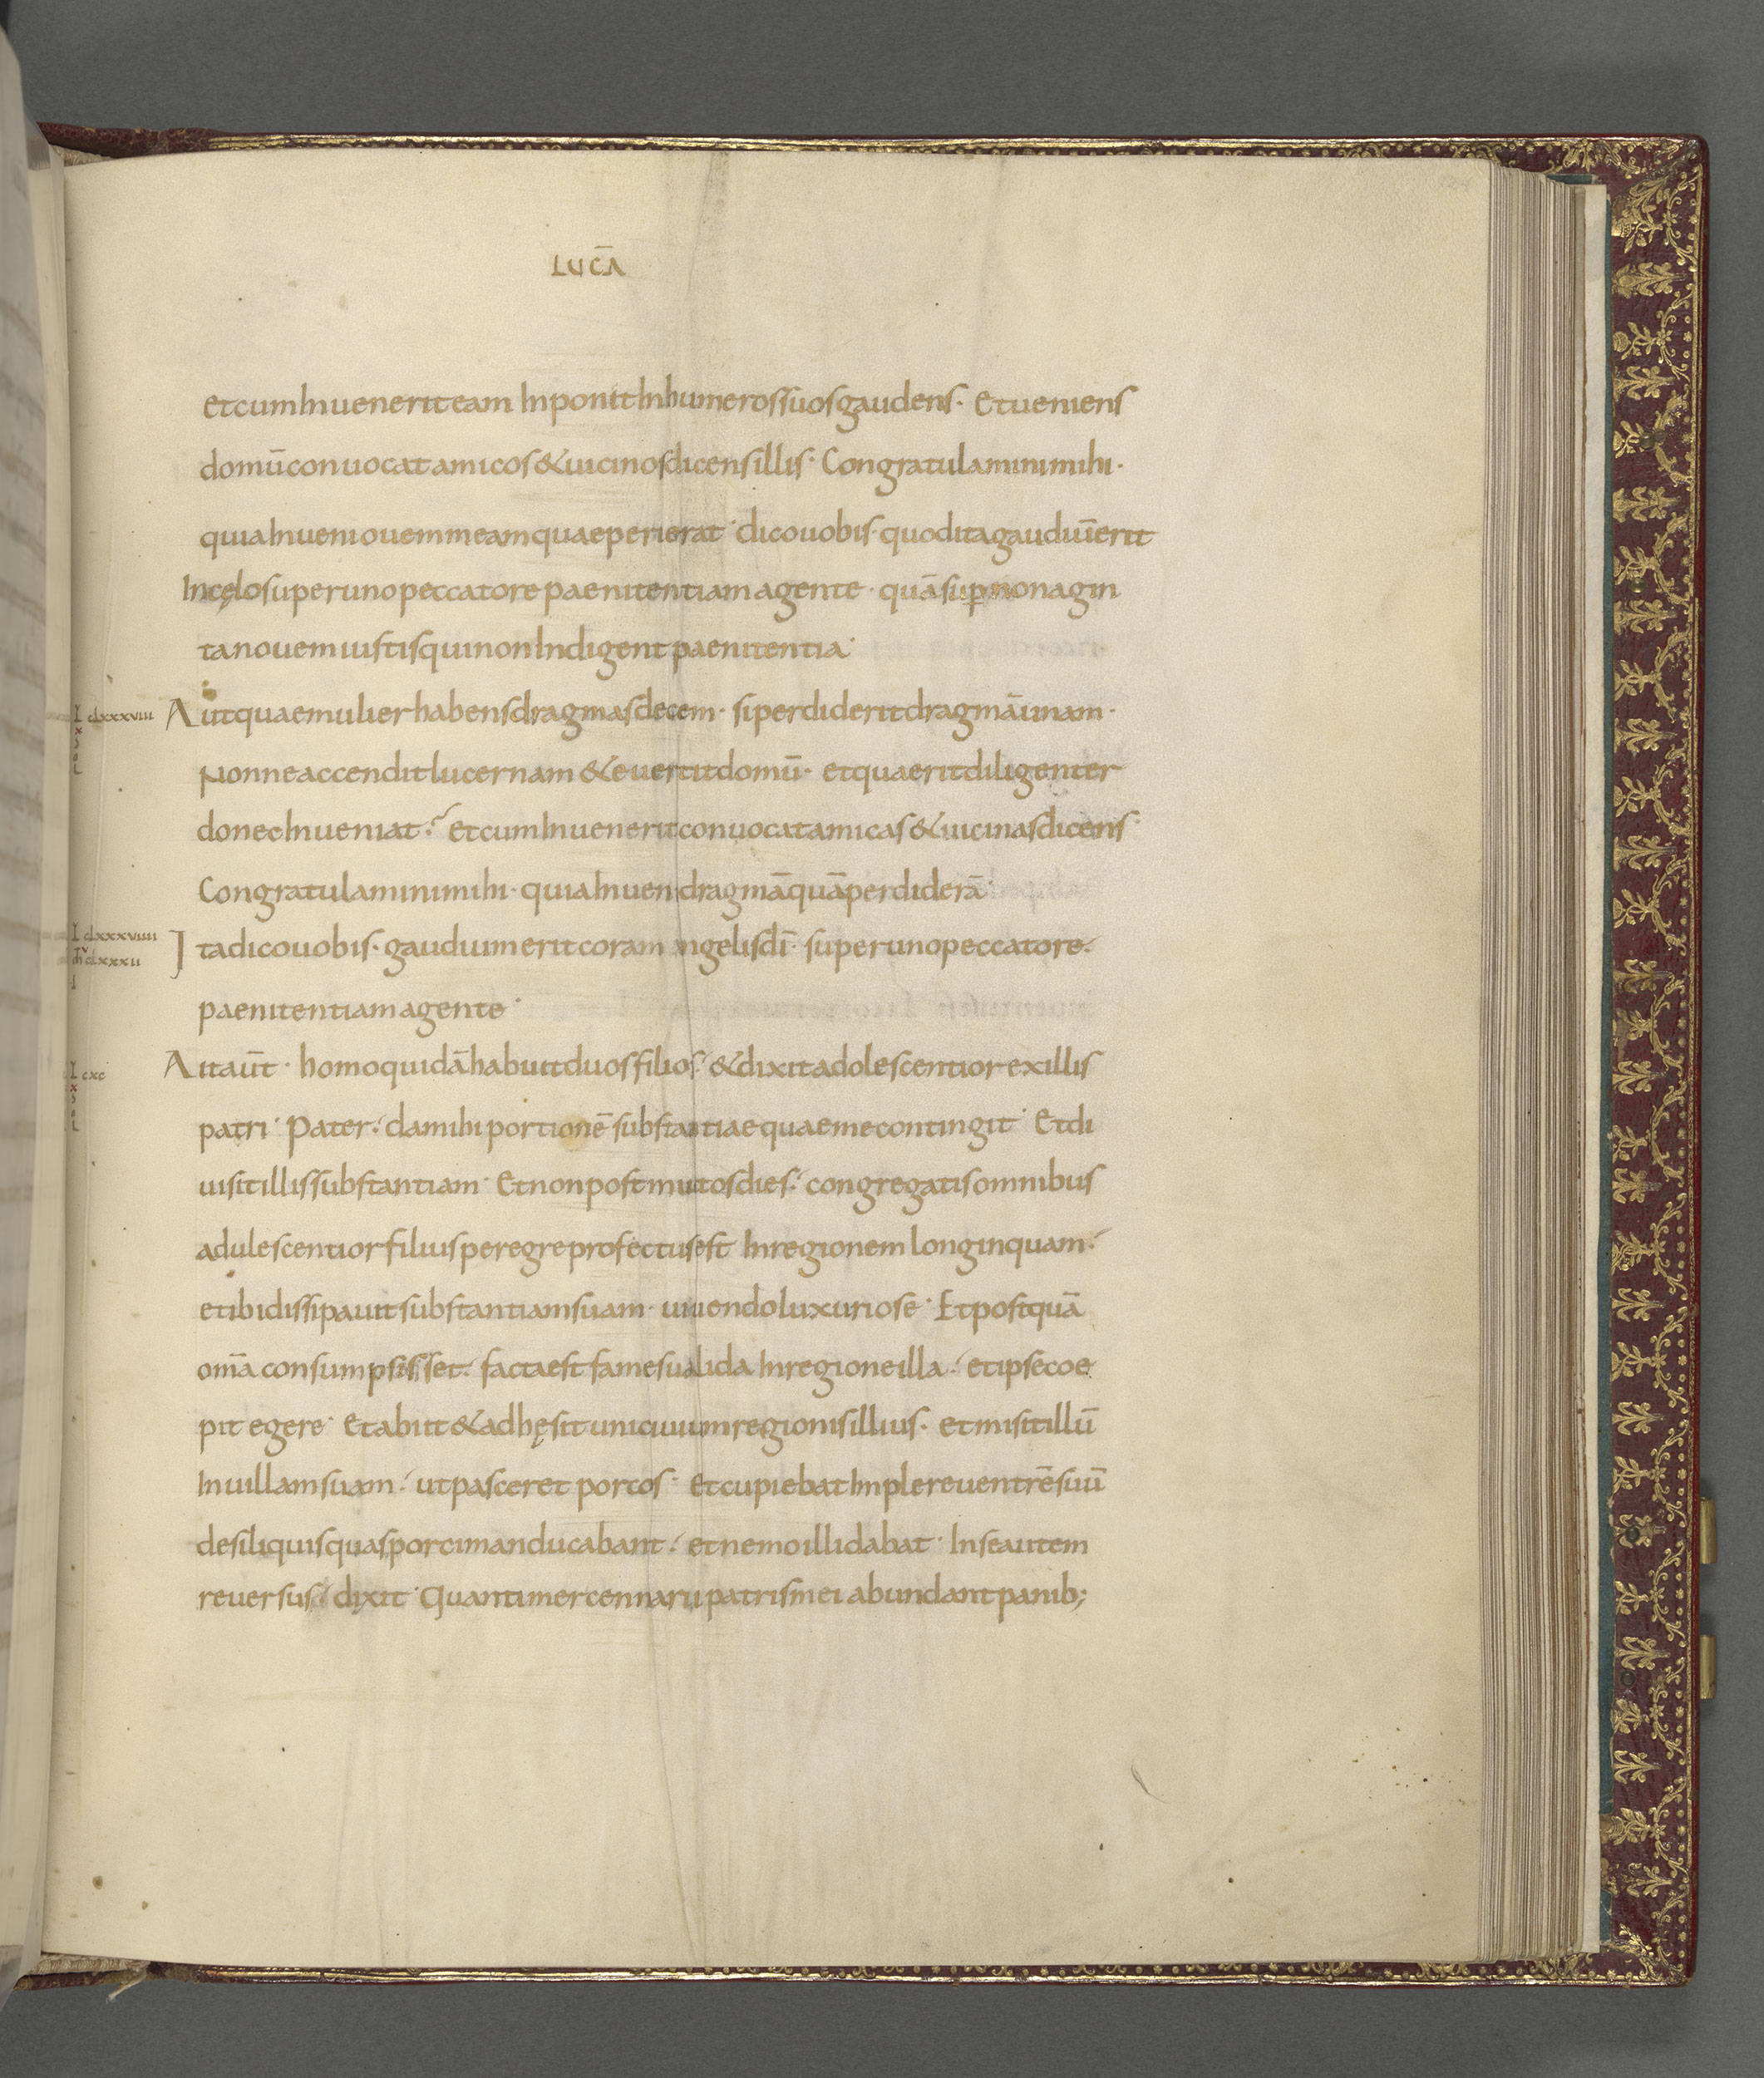 LUCĀ
et cum Inuenerit eam Inponit In humeros suos gaudens · Et ueniens
domū conuocat amicos & uicinos dicens illis · Congratulamini mihi ·
quia Inueni ouem meam quae perierat · dico uobis · quod ita gaudiū erit
In cęlo super uno peccatore paenitentiam agente · quā sup nonagin
ta nouem iustis qui non Indigent paenitentia ·
L clxxxviii
x
Aut quae mulier habens dragmas decem · si perdiderit dragmā unam ·
Nonne accendit lucernam & euertit domū · et quaerit diligenter
donec Inueniat ? et cum Inuenerit conuocat amicas & uicinas dicens
Congratulamini mihi · quia Inueni dragmā quā perdiderā ·
L clxxxviiii
clxxxii
Ita dico uobis · gaudium erit coram angelis dī · super uno peccatore
paenitentiam agente ·
L cxc
x
Ait aūt · homo quidā habuit duos filios & dixit adolescentior ex illis
patri · Pater da mihi portionē substantiae quae me contingit · Et di
uisit illis substantiam · Et non post mutos dies congregatis omnibus
adulescentior filius peregre profectus est In regionem longinquam
et ibi dissipauit substantiam suam · uiuendo luxuriose · Et postquā
omā consumpsisset facta est fames ualida In regione illa et ipse coe
pit egere · Et abiit & adhęsit uni ciuium regionis illius · et misit illū
In uillam suam ut pasceret porcos · et cupiebat Implere uentrē suū
de siliquis quas porci manducabant et nemo illi dabat · In se autem
reuersus dixit · Quanti mercennarii patris mei abundant panib;